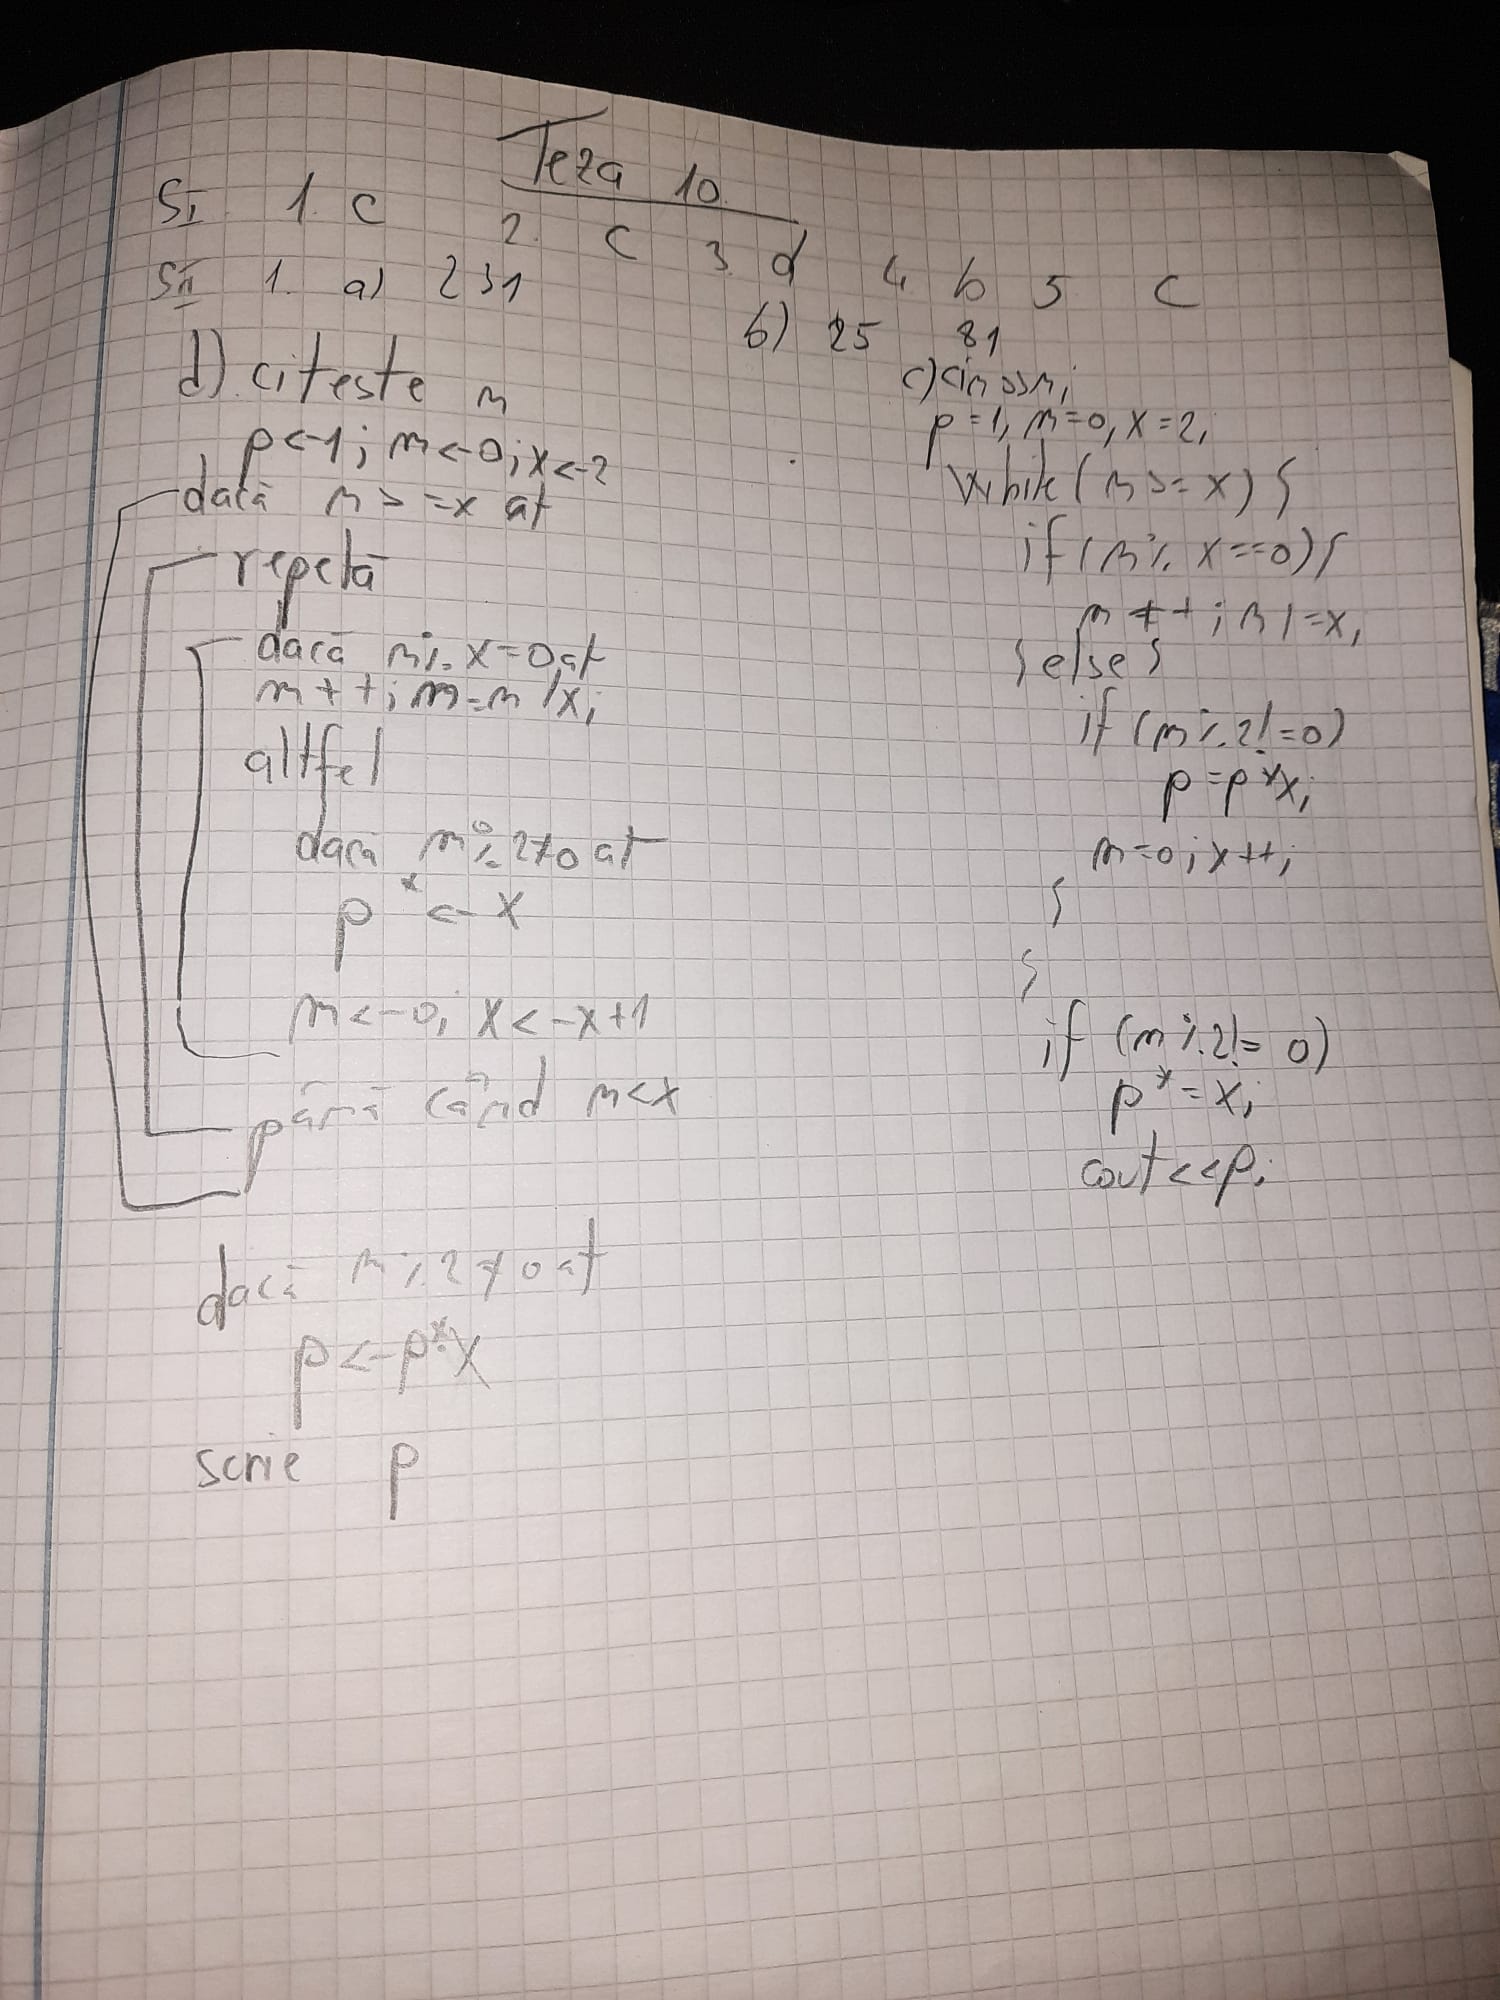 Teza 10.
SI 1. c 2. c 3. d 4. b 5 c
SII 1. a) 231 b) 25 81
d) citeste n
p<-1; m<-0; x<-2
dacă n>=x at
repetă
dacă n%x=0 at
m++; n=n/x;
altfel
dacă m%2≠0 at
p *<- x
m<-0; x<-x+1
până când n<x
dacă m%2≠0 at
p<-p*x
scrie p
c) cin>>n;
p=1, m=0, x=2;
while(n>=x){
if(n%x==0){
m++; n/=x;
}else{
if(m%2!=0)
p=p*x;
m=0; x++;
}
}
if(m%2!=0)
p*=x;
cout<<p;